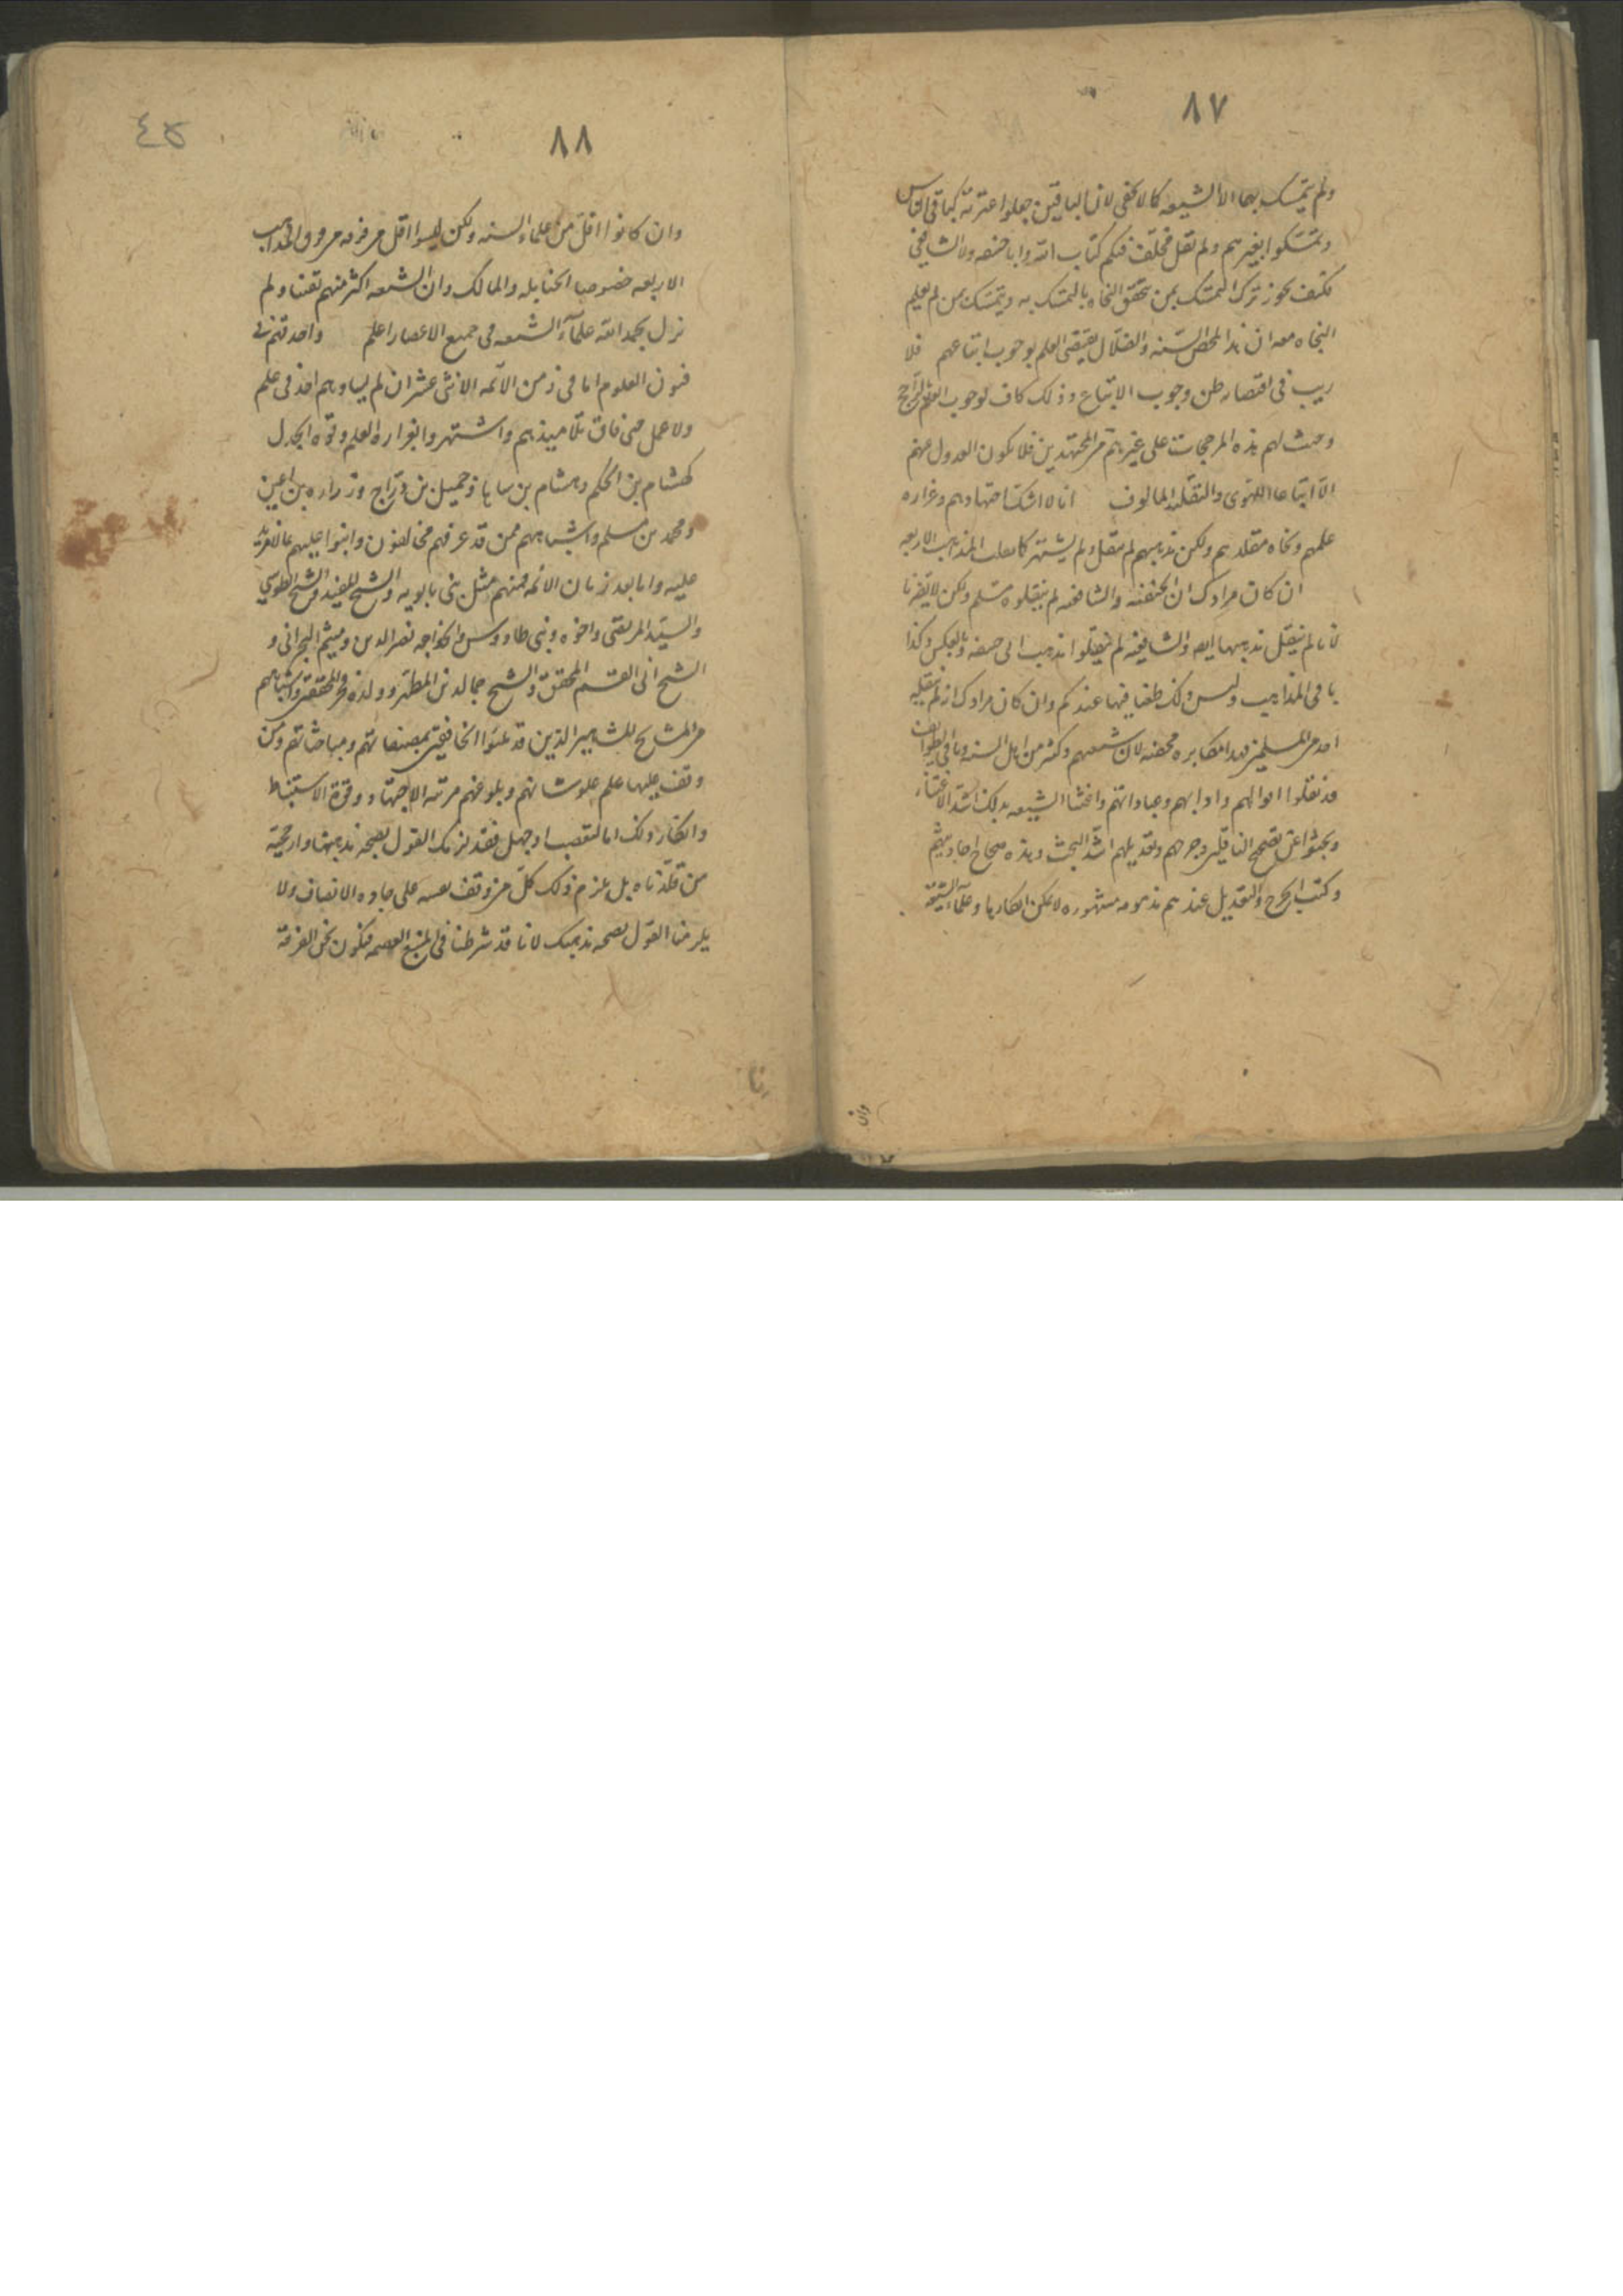 ٨٧
ولم يتمسك بها الا الشيعه كما لا يخفى لان الباقين جعلوا عترته كباقي الناس
وتمسكوا بغيرهم ولم يقل مخلف فيكم كتاب الله وابا حنيفه ولا الشافعي
فكيف يجوز ترك التمسك بمن تحقق النجاه بالتمسك به ويتمسك بمن لم يعلم
النجاه معه ان هذا لمحض السفه والضلال يقتضى العلم بوجوب اتباعهم فلا
ريب في اقتضاء ظن وجوب الاتباع وذلك كاف لوجوب العلم بالراجح
وحيث لهم هذه المرجحات على غيرهم من المجتهدين فلا يكون العدول عنهم
الا اتباعا للهوى والتقليد المالوف انا لا اشك اجتهادهم وغزاره
علمهم ونجاه مقلديهم ولكن مذهبهم لم ينقل ولم يشتهر كما نقلت المذاهب الاربعه
ان كان مرادك ان الحنفيه والشافعيه لم ينقلوه مسلم ولكن لا يضرنا
لانا لم ينقل مذهبهما ايضا والشافعيه لم ينقلوا مذهب ابى حنيفه وبالعكس وكذا
باقي المذاهب وليس ذلك طعنا فيها عندكم وان كان مرادك انه لم ينقله
احد من المسلمين فهذا مكابره محضه لان شيعتهم وكثير من اهل السنه وباقي الطوائف
قد نقلوا اقوالهم وادابهم وعباداتهم واعتنا الشيعه بذلك اشد الاعتناء
وبحثوا عن تصحيح الناقلين وجرحهم وتعديلهم اشد البحث وهذه صحاح احاديثهم
وكتب الجرح والتعديل عندهم مدونه مشهوره لا يمكن انكارها وعلماء الشيعة
وان
٨٨
٤٥
وان كانوا اقل من علماء السنه ولكن ليسوا اقل من فرقه من فرق المذاهب
الاربعه خصوصا الحنابله والمالك وان الشيعه اكثر منهم تفننا ولم
نزل بحمد الله علماء الشيعه في جميع الاعصار اعلم واحد قنهم في
فنون العلوم اما في زمن الائمه الاثنى عشر ان لم يساويهم احد في علم
ولا عمل حتى فاق تلاميذهم واشتهروا بغزاره العلم وقوه الجدل
كهشام بن الحكم وهشام بن سالم وجميل بن دراج وزراره بن اعين
ومحمد بن مسلم واشباههم ممن قد عرفهم مخالفون واثنوا عليهم بما لا مزيد
عليه واما بعد زمان الائمه فمنهم مثل بنى بابويه والشيخ المفيد والشيخ الطوسي
والسيد المرتضى واخوه وبنى طاووس والخواجه نصر الدين وميثم البحراني و
الشيخ ابى القسم المحقق والشيخ جمالدين المطهر وولده فخر المحققين واشباههم
من المشايخ المشاهير الذين قد ملئوا الخافقين بمصنفاتهم ومباحثاتهم ومن
وقف عليها علم علو شانهم وبلوغهم مرتبه الاجتهاد وقوة الاستنباط
وانكار ذلك اما لتعصب او جهل فقد لزمك القول بصحه مذهبنا وارجحية
من قلدناه بل يلزم ذلك كل من وقف نفسه على جاده الانصاف ولا
يلزمنا القول بصحه مذهبك لانا قد شرطنا في المتبع العصمه فنكون نحن الفرقة
انا